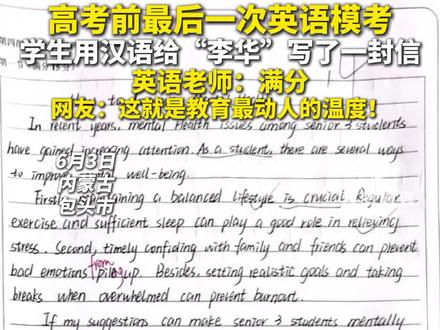 高考前最后一次英语模考
学生用汉语给“李华”写了一封信
英语老师：满分
网友：这就是教育最动人的温度！
In recent years, mental health issues among senior 3 students
have gained increasing attention. As a student, there are several ways
to improve well-being.
6月3日
内蒙古
包头市
First, maintaining a balanced lifestyle is crucial. Regular
exercise and sufficient sleep can play a good role in relieving
stress. Second, timely confiding with family and friends can prevent
bad emotions from piling up. Besides, setting realistic goals and taking
breaks when overwhelmed can prevent burnout.
If my suggestions can make senior 3 students mentally